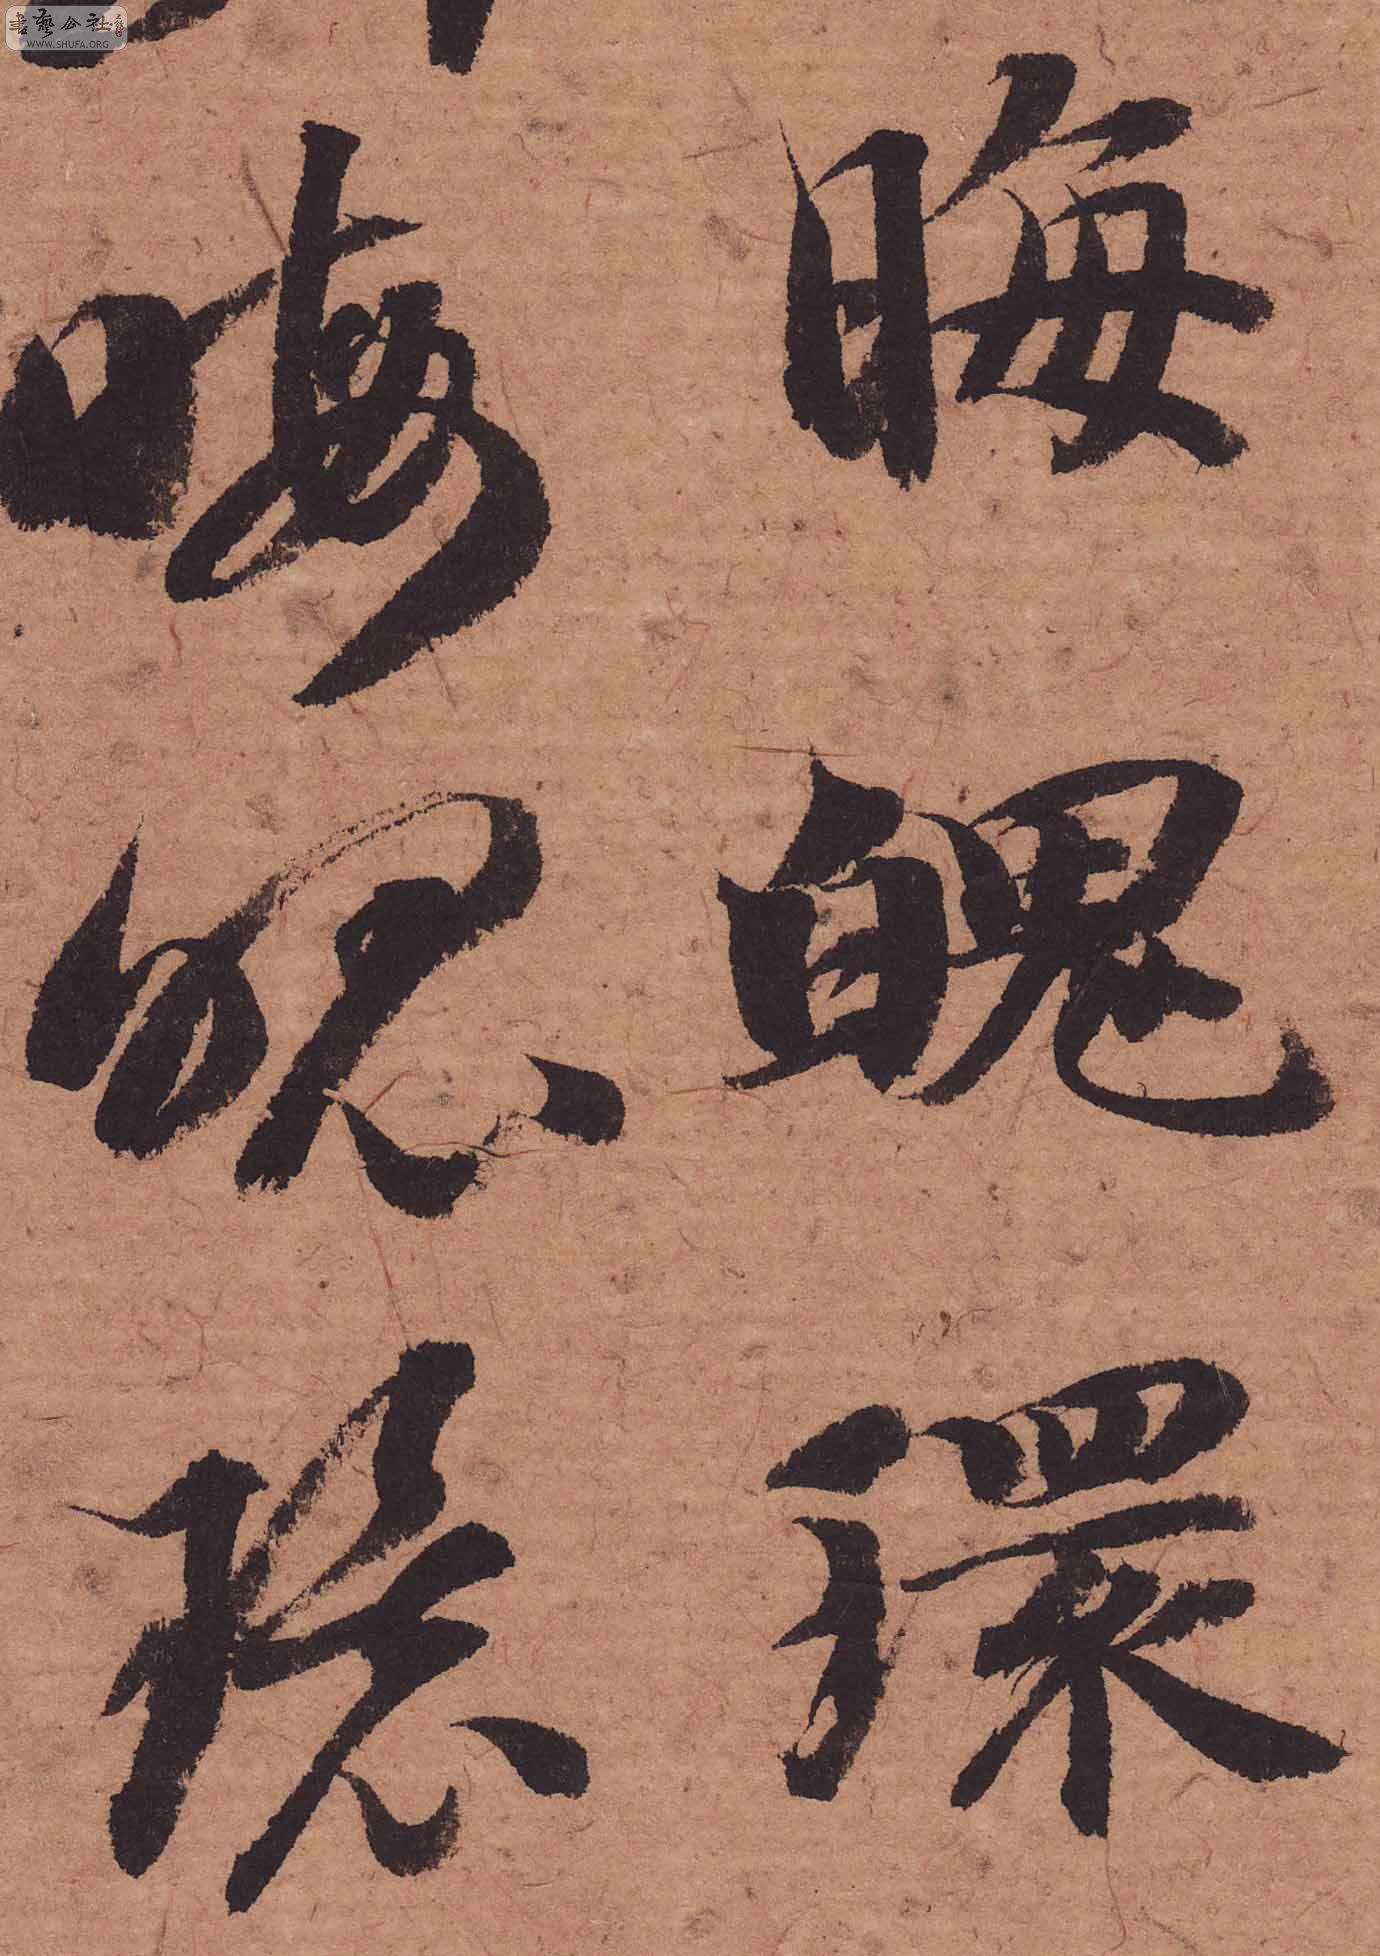 晦魄環
晦魄環
書藝公社
WWW.SHUFA.ORG